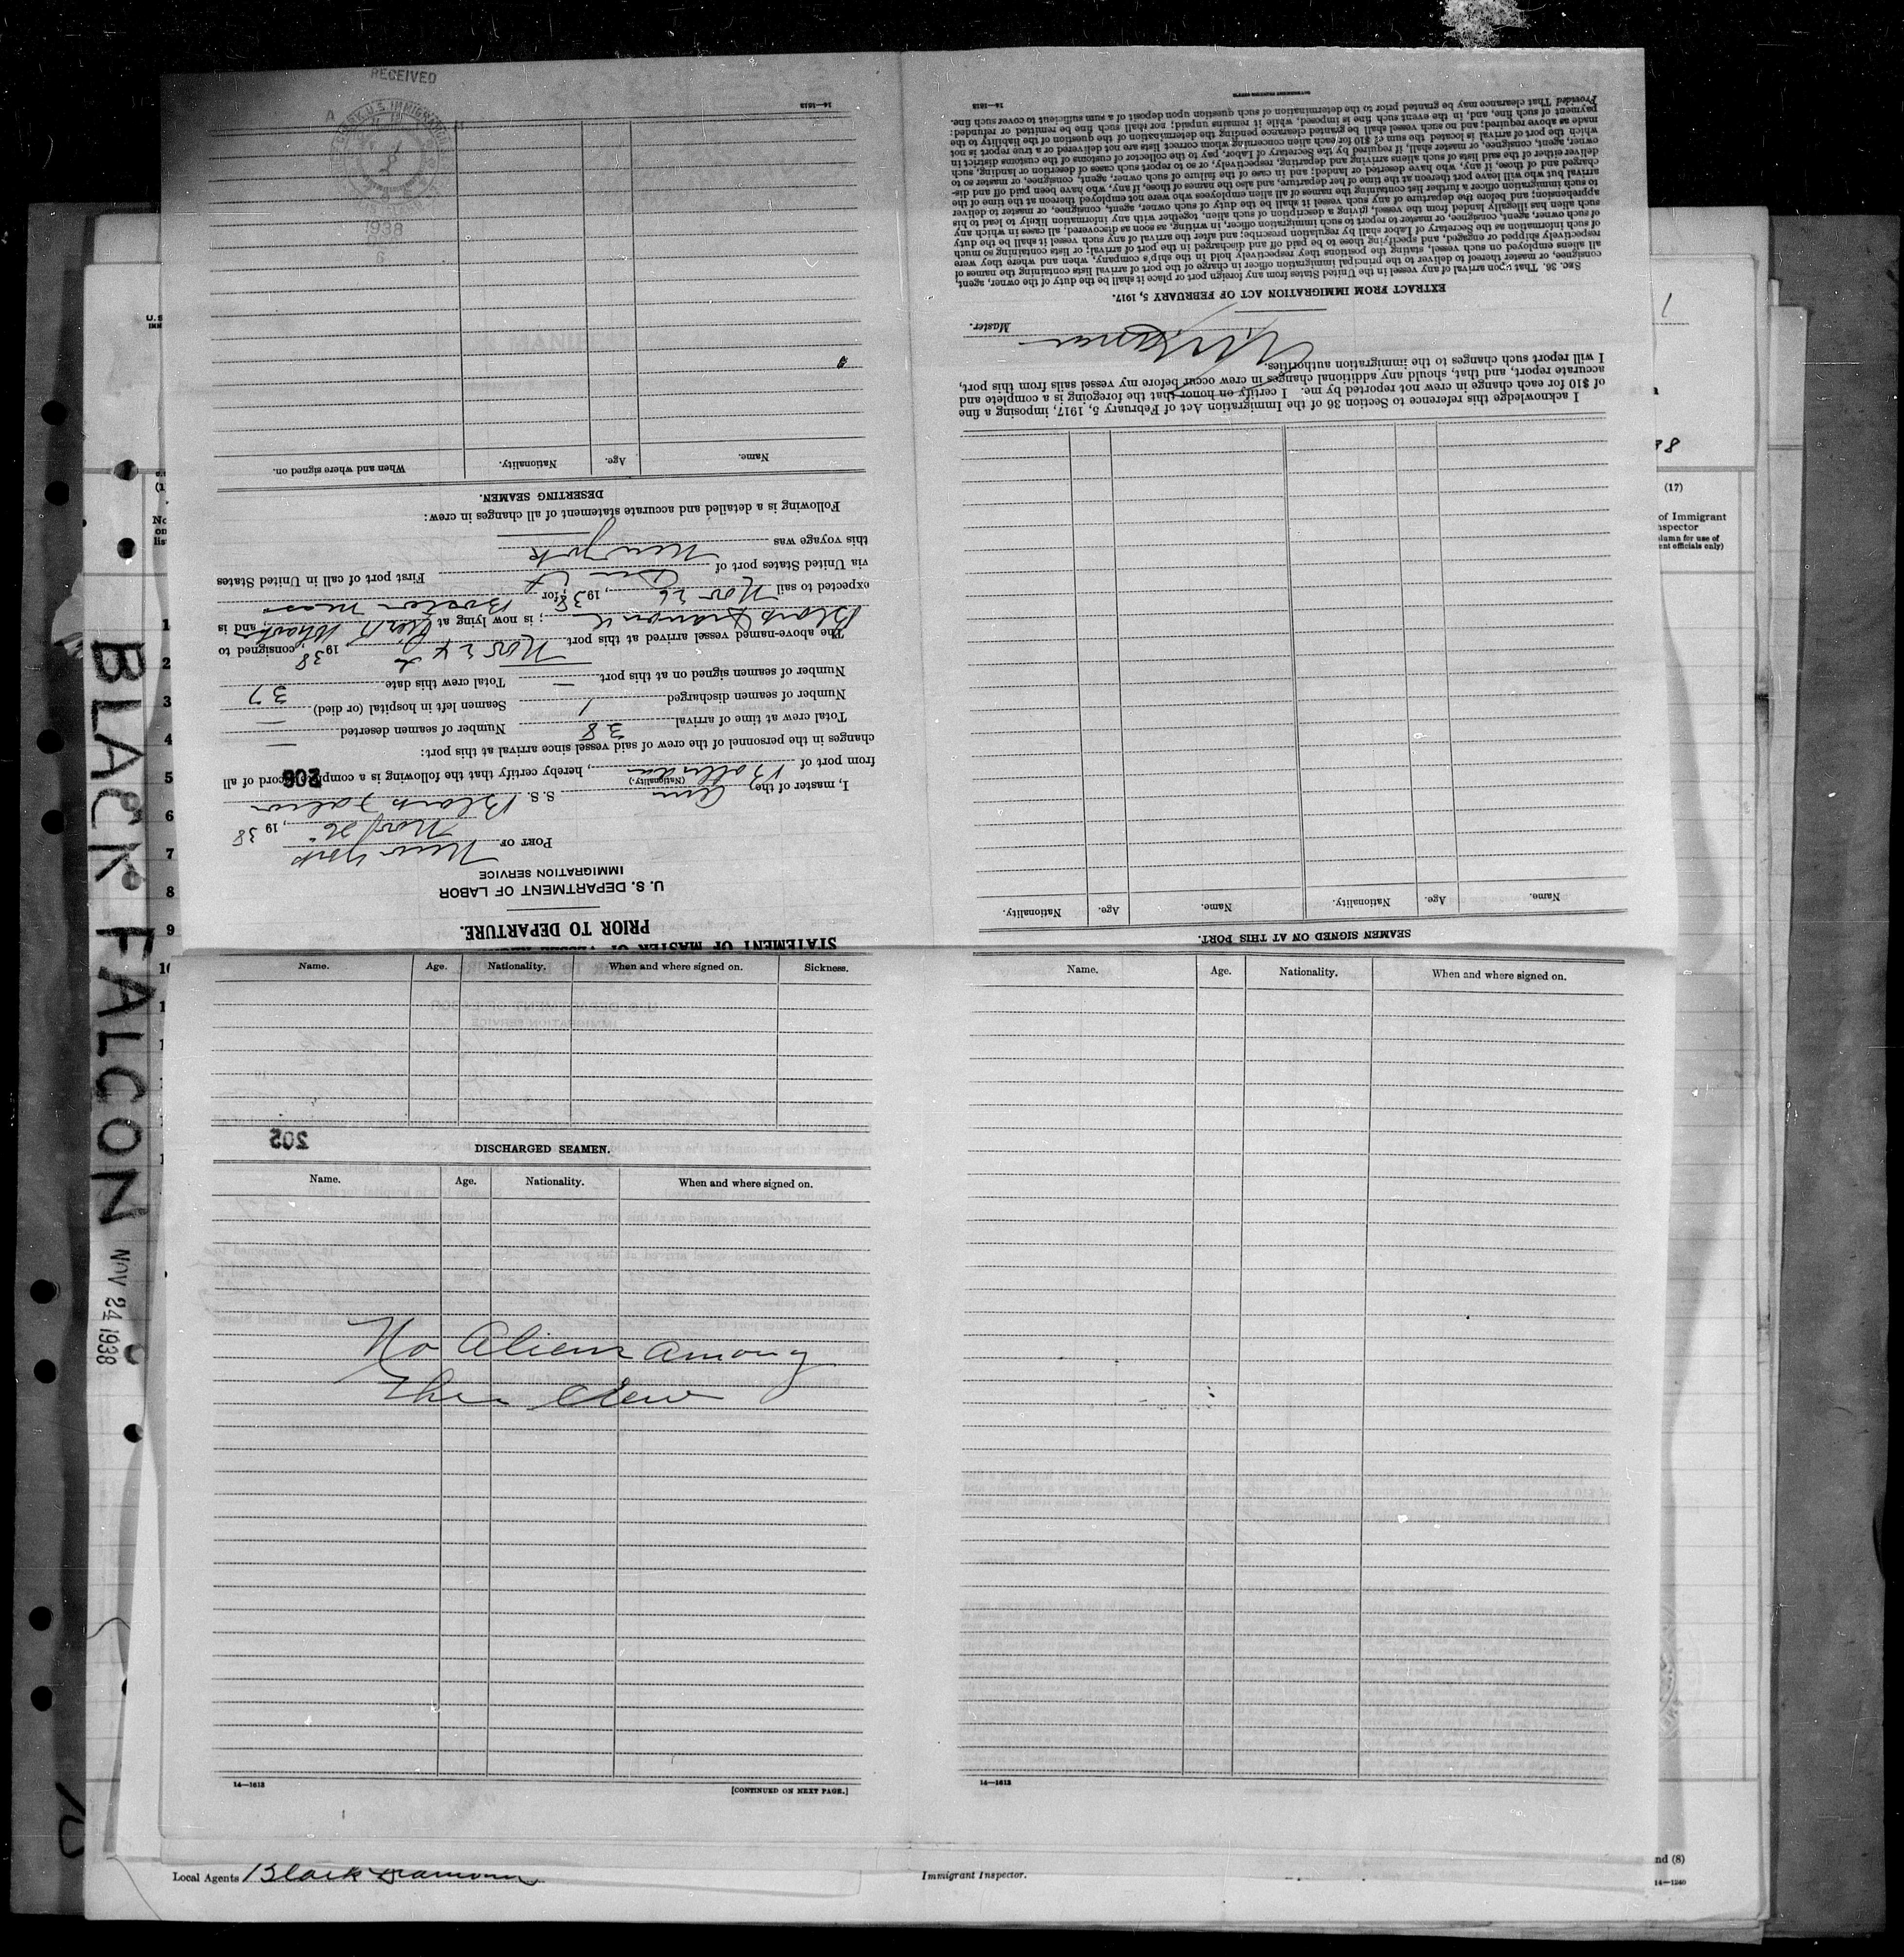 RECEIVED
1938
14—1613
When and where signed on.
Nationality.
Age.
Name.
DESERTING SEAMEN.
STATEMENT OF MASTER OF VESSEL
PRIOR TO DEPARTURE.
U. S. DEPARTMENT OF LABOR
IMMIGRATION SERVICE
PORT OF New York
Nov 26, 1938
I, master of the Am S. S. Black Falcon
(Nationality.)
from port of , hereby certify that the following is a complete record of all
206
changes in the personnel of the crew of said vessel since arrival at this port:
Total crew at time of arrival 38 Number of seamen deserted —
Number of seamen discharged 1 Seamen left in hospital (or died) —
Number of seamen signed on at this port — Total crew this date 37
The above-named vessel arrived at this port Nov 24, 1938, consigned to
Black Diamond; is now lying at , and is
expected to sail Nov 26, 1938, for Boston Mass
via United States port of First port of call in United States
this voyage was New York
Following is a detailed and accurate statement of all changes in crew:
SEAMEN SIGNED ON AT THIS PORT.
Name. Age. Nationality. Name. Age. Nationality.
I acknowledge this reference to Section 36 of the Immigration Act of February 5, 1917, imposing a fine
of $10 for each change in crew not reported by me. I certify on honor that the foregoing is a complete and
accurate report, and that, should any additional changes in crew occur before my vessel sails from this port,
I will report such changes to the immigration authorities.
Master.
EXTRACT FROM IMMIGRATION ACT OF FEBRUARY 5, 1917.
SEC. 36. That upon arrival of any vessel in the United States from any foreign port or place it shall be the duty of the owner, agent,
consignee, or master thereof to deliver to the principal immigration officer in charge of the port of arrival lists containing the names of
all aliens employed on such vessel, stating the positions they respectively hold in the ship's company, when and where they were
respectively shipped or engaged, and specifying those to be paid off and discharged in the port of arrival; or lists containing so much
of such information as the Secretary of Labor shall by regulation prescribe; and after the arrival of any such vessel it shall be the duty
of such owner, agent, consignee, or master to report to such immigration officer, in writing, as soon as discovered, all cases in which any
such alien has illegally landed from the vessel, giving a description of such alien, together with any information likely to lead to his
apprehension; and before the departure of any such vessel it shall be the duty of such owner, agent, consignee, or master to deliver
to such immigration officer a further list containing the names of all alien employees who were not employed thereon at the time of the
arrival but who will leave port thereon at the time of her departure, and also the names of those, if any, who have been paid off and dis-
charged and of those, if any, who have deserted or landed; and in case of the failure of such owner, agent, consignee, or master so to
deliver either of the said lists of such aliens arriving and departing, respectively, or so to report such cases of desertion or landing, such
owner, agent, consignee, or master shall, if required by the Secretary of Labor, pay to the collector of customs of the customs district in
which the port of arrival is located the sum of $10 for each alien concerning whom correct lists are not delivered or a true report is not
made as above required; and no such vessel shall be granted clearance pending the determination of the question of the liability to the
payment of such fine, and, in the event such fine is imposed, while it remains unpaid; nor shall such fine be remitted or refunded:
Provided That clearance may be granted prior to the determination of such question upon deposit of a sum sufficient to cover such fine.
14—1613
Name. Age. Nationality. When and where signed on. Sickness.
205
DISCHARGED SEAMEN.
Name. Age. Nationality. When and where signed on.
No Aliens among
the crew
14—1613
[CONTINUED ON NEXT PAGE.]
Name. Age. Nationality. When and where signed on.
14—1613
BLACK FALCON NOV 24 1938
1
2
3
4
5
6
7
8
9
(17)
of Immigrant
Local Agents Black Diamond
Immigrant Inspector.
nd (8)
14—1240